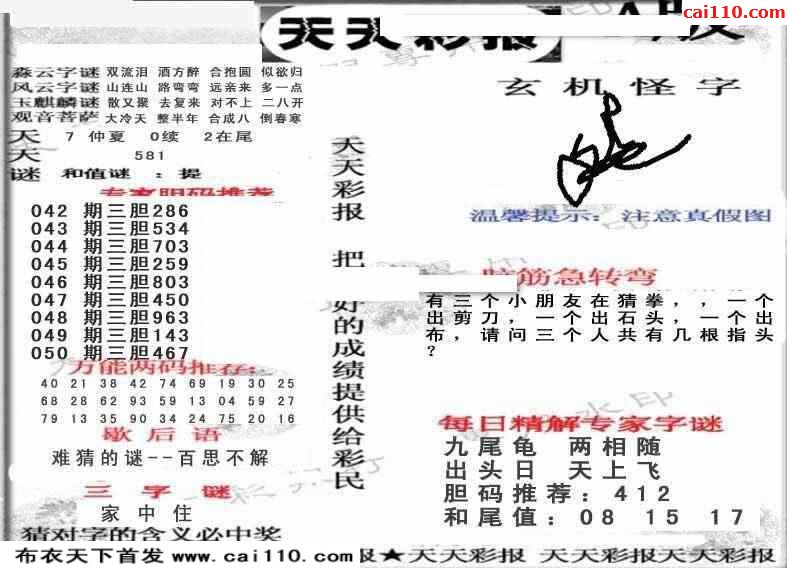 cai110.com
天天彩报
版
森云字谜 双流泪 酒方醉 合抱圆 似欲归
风云字谜 山连山 路弯弯 远亲来 多一点
玉麒麟谜 散又聚 去复来 对不上 二八开
观音菩萨 大冷天 整半年 合成八 倒春寒
天 7 仲夏 0续 2在尾
天 581
谜 和值谜 : 提
专家胆码推荐
042 期三胆286
043 期三胆534
044 期三胆703
045 期三胆259
046 期三胆803
047 期三胆450
048 期三胆963
049 期三胆143
050 期三胆467
万能两码推荐:
40 21 38 42 74 69 19 30 25
68 28 62 93 59 13 04 59 27
79 13 35 90 34 24 75 20 16
歇后语
难猜的谜--百思不解
三字谜
家中住
猜对字的含义必中奖
天天彩报 把好的成绩提供给彩民
玄机怪字
温馨提示: 注意真假图
脑筋急转弯
有三个小朋友在猜拳,,一个
出剪刀,一个出石头,一个出
布,请问三个人共有几根指头
?
每日精解专家字谜
九尾龟 两相随
出头日 天上飞
胆码推荐:412
和尾值:08 15 17
布衣天下首发 www.cai110.com 彩报★天天彩报 天天彩报 天天彩报天天彩报